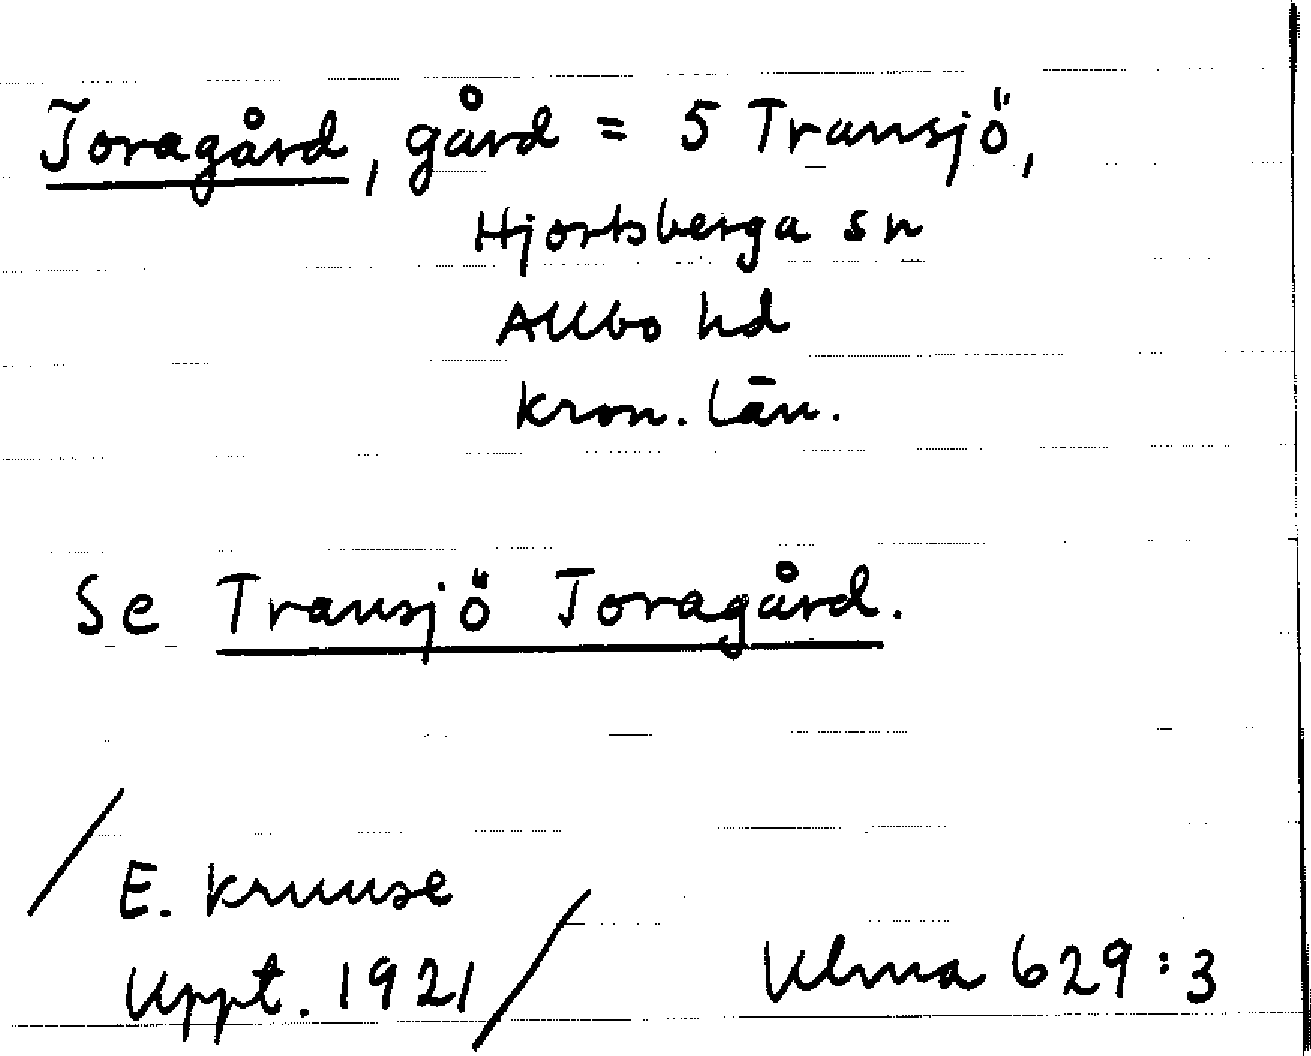 Toragård, gård = 5 Transjö,
Hjortsberga sn
Allbo hd
Kron. län.
Se Transjö Toragård.
/E. Kruuse
Uppt. 1921/
Ulma 629:3